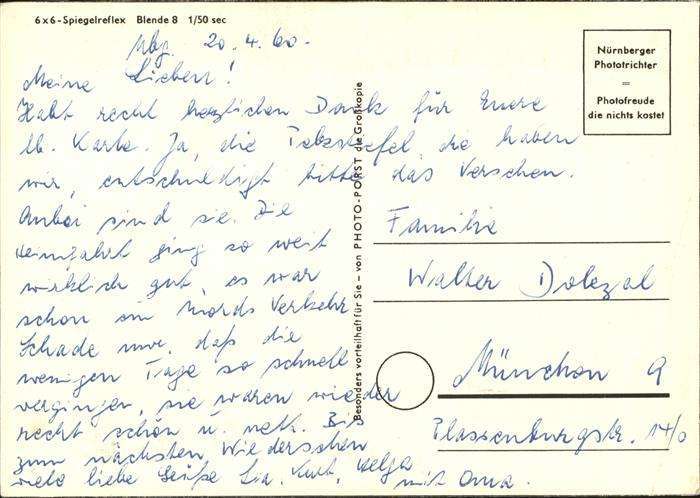 6x6-Spiegelreflex Blende 8 1/50 sec
Nbg. 20.4.60.
Meine Lieben!
Habt recht herzlichen Dank für Euere
lb. Karte. Ja, die Pelzstiefel, die haben
wir, entschuldigt bitte das Versehen.
Anbei sind sie. Die
Heimfahrt ging so weit
wirklich gut, es war
schon ein Mords Verkehr
Schade nur, daß die
wenigen Tage so schnell
vergingen, sie waren wieder
recht schön u. nett. Bis
zum nächsten Wiedersehen
viele liebe Grüße Kurt, Helga
mit Oma.
Besonders vorteilhaft für Sie – von PHOTO-PORST die Großkopie
Nürnberger
Phototrichter
=
Photofreude
die nichts kostet
Familie
Walter Dolezal
München 9
Plassenburgstr. 14/0